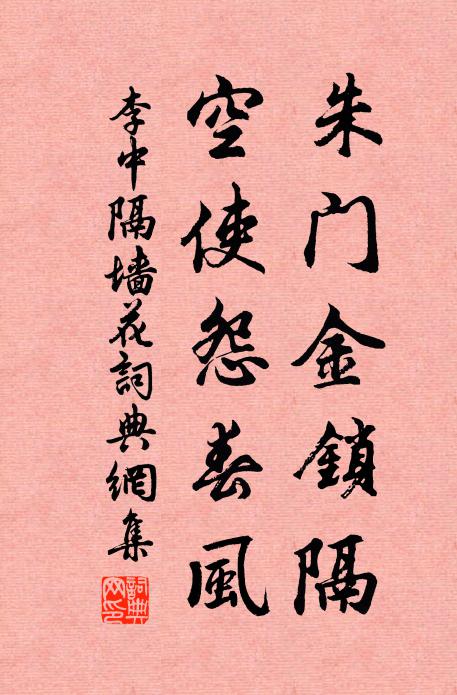 朱门金鎖隔
空使怨春風
李中隔墙花詞典網集
詞典
网印